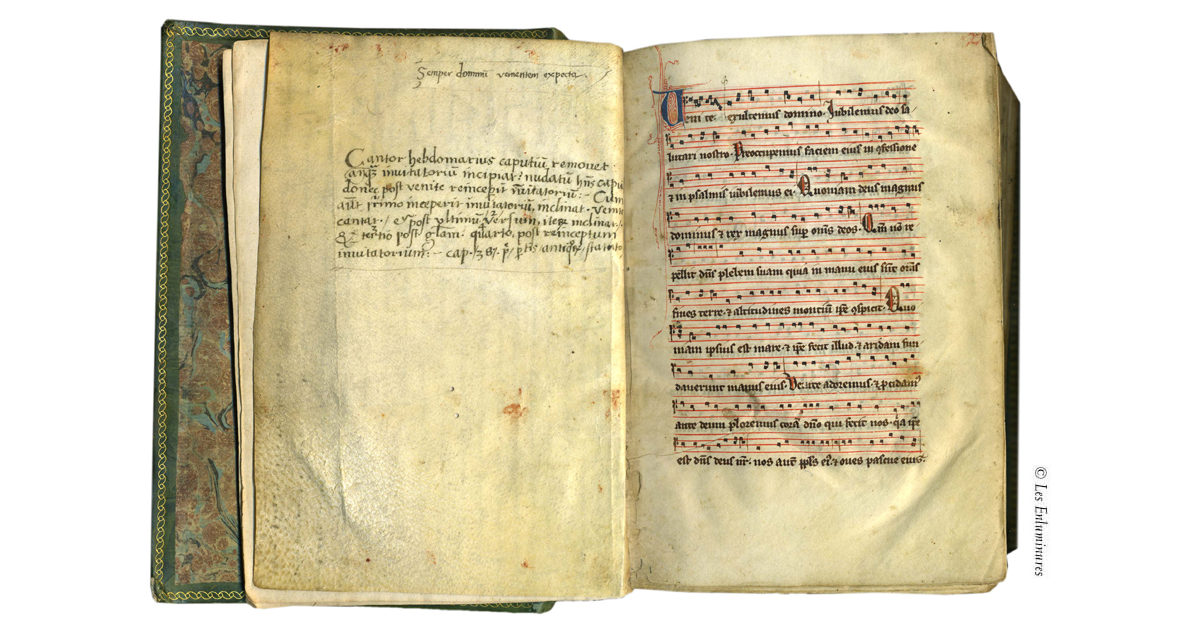 Semper dominū venientem expecta.
Cantor hebdomarius caputiū removet
antq̄ʒ invitatoriū incipiat: nudatū hn̄s capu
donec post venite reincepit īnvitatoriū :- Cum
aūt primo inceperit invitatoriū, inclinat. venite
cantat. / et post ultimū versum, iteʒ inclinat.
Et tertio post gl̄am: quarto, post reinceptum
invitatorium: - cap. 
Venite exultemus domino. Jubilemus deo sa
lutari nostro. Preoccupemus faciem eius in ꝯfessione
⁊ in psalmis iubilemus ei. Quoniam deus magnus
dominus ⁊ rex magnus suꝑ om̄s deos. Qm̄ nō re
pellit dn̄s plebem suam quia in manu eius sūt om̄s
fines terre. ⁊ altitudines montiū ip̄e ꝯspicit. Quo
niam ipsius est mare. ⁊ ip̄e fecit illud. ⁊ aridam fun
daverunt manus eius. Venite adoremus. ⁊ ꝓcidam᷒
ante deum ploremus corā dn̄o qui fecit nos. q̄a ip̄e
est dn̄s deus nr̄. nos aut̄ pp̄ls ei᷒. ⁊ oves pascue eius.
© Les Enluminures